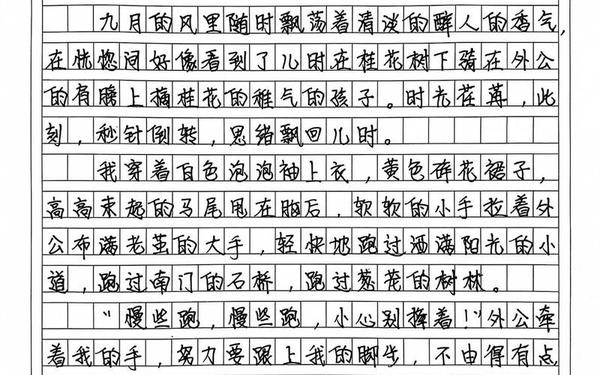 九月的风里随时飘荡着清淡的醉人的香气,
在恍惚间好像看到了儿时在桂花树下骑在外公
的肩膀上摘桂花的稚气的孩子。时光荏苒,此
刻,秒针倒转,思绪飘回儿时。
我穿着白色泡泡袖上衣,黄色碎花裙子,
高高束起的马尾甩在脑后,软软的小手拉着外
公布满老茧的大手,轻快地跑过洒满阳光的小
道,跑过南门的石桥,跑过葱茏的树林。
“慢些跑,慢些跑,小心别摔着!”外公牵
着我的手,努力要跟上我的脚步,不由得有点